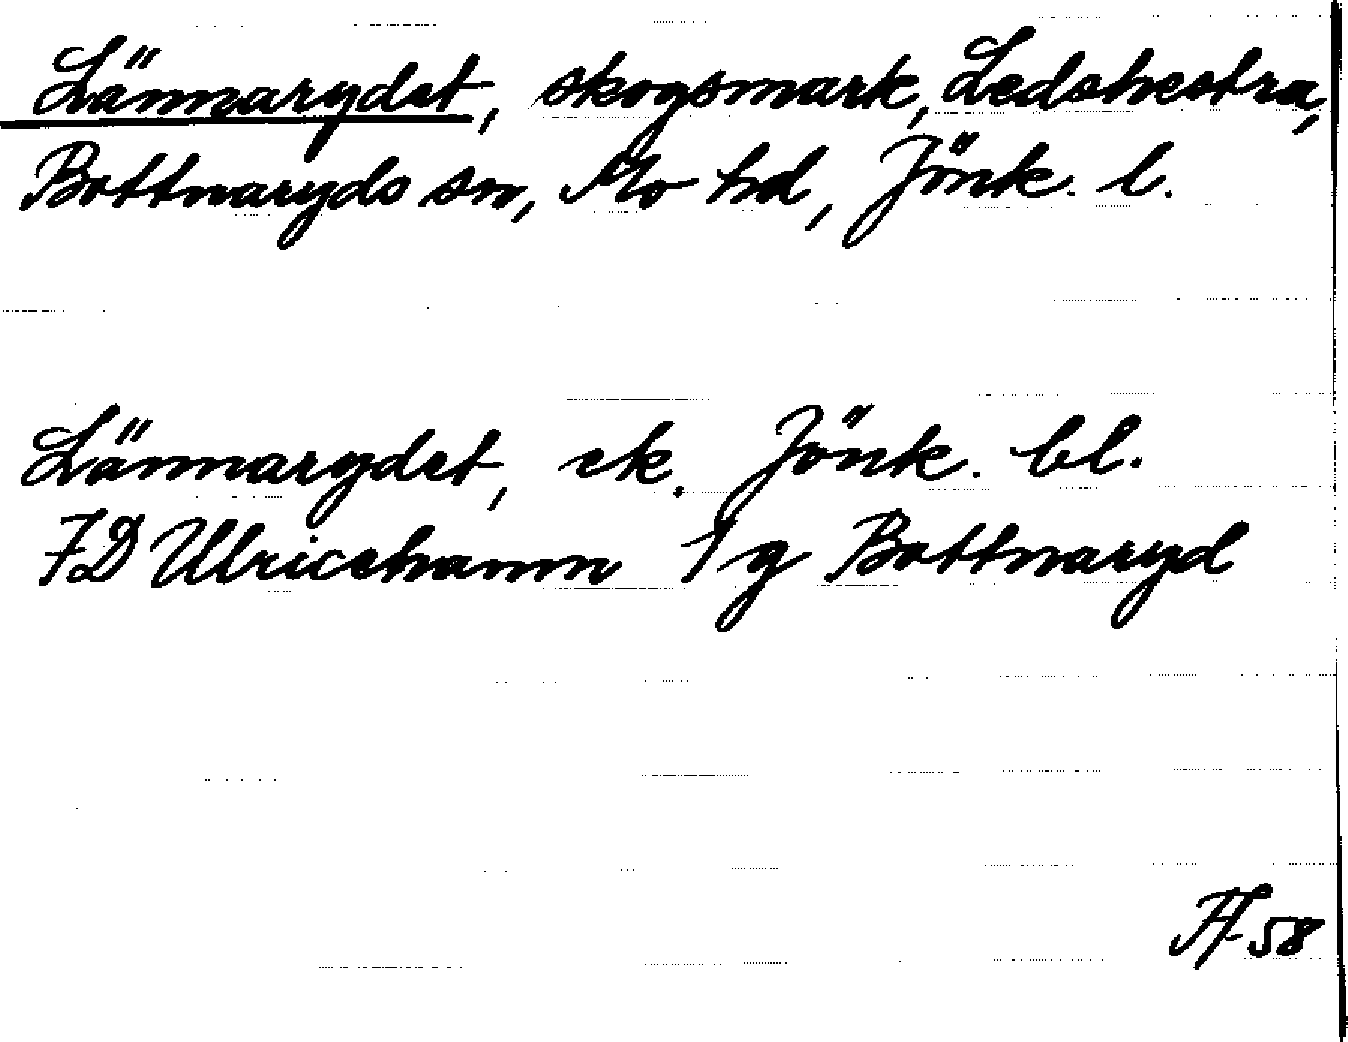 Lännarydet, skogsmark, Ledshestra,
Bottnaryds sn, Mo hd, Jönk. l.
Lännarydet, ek. Jönk. bl.
7D Ulricehamn 1g Bottnaryd
58